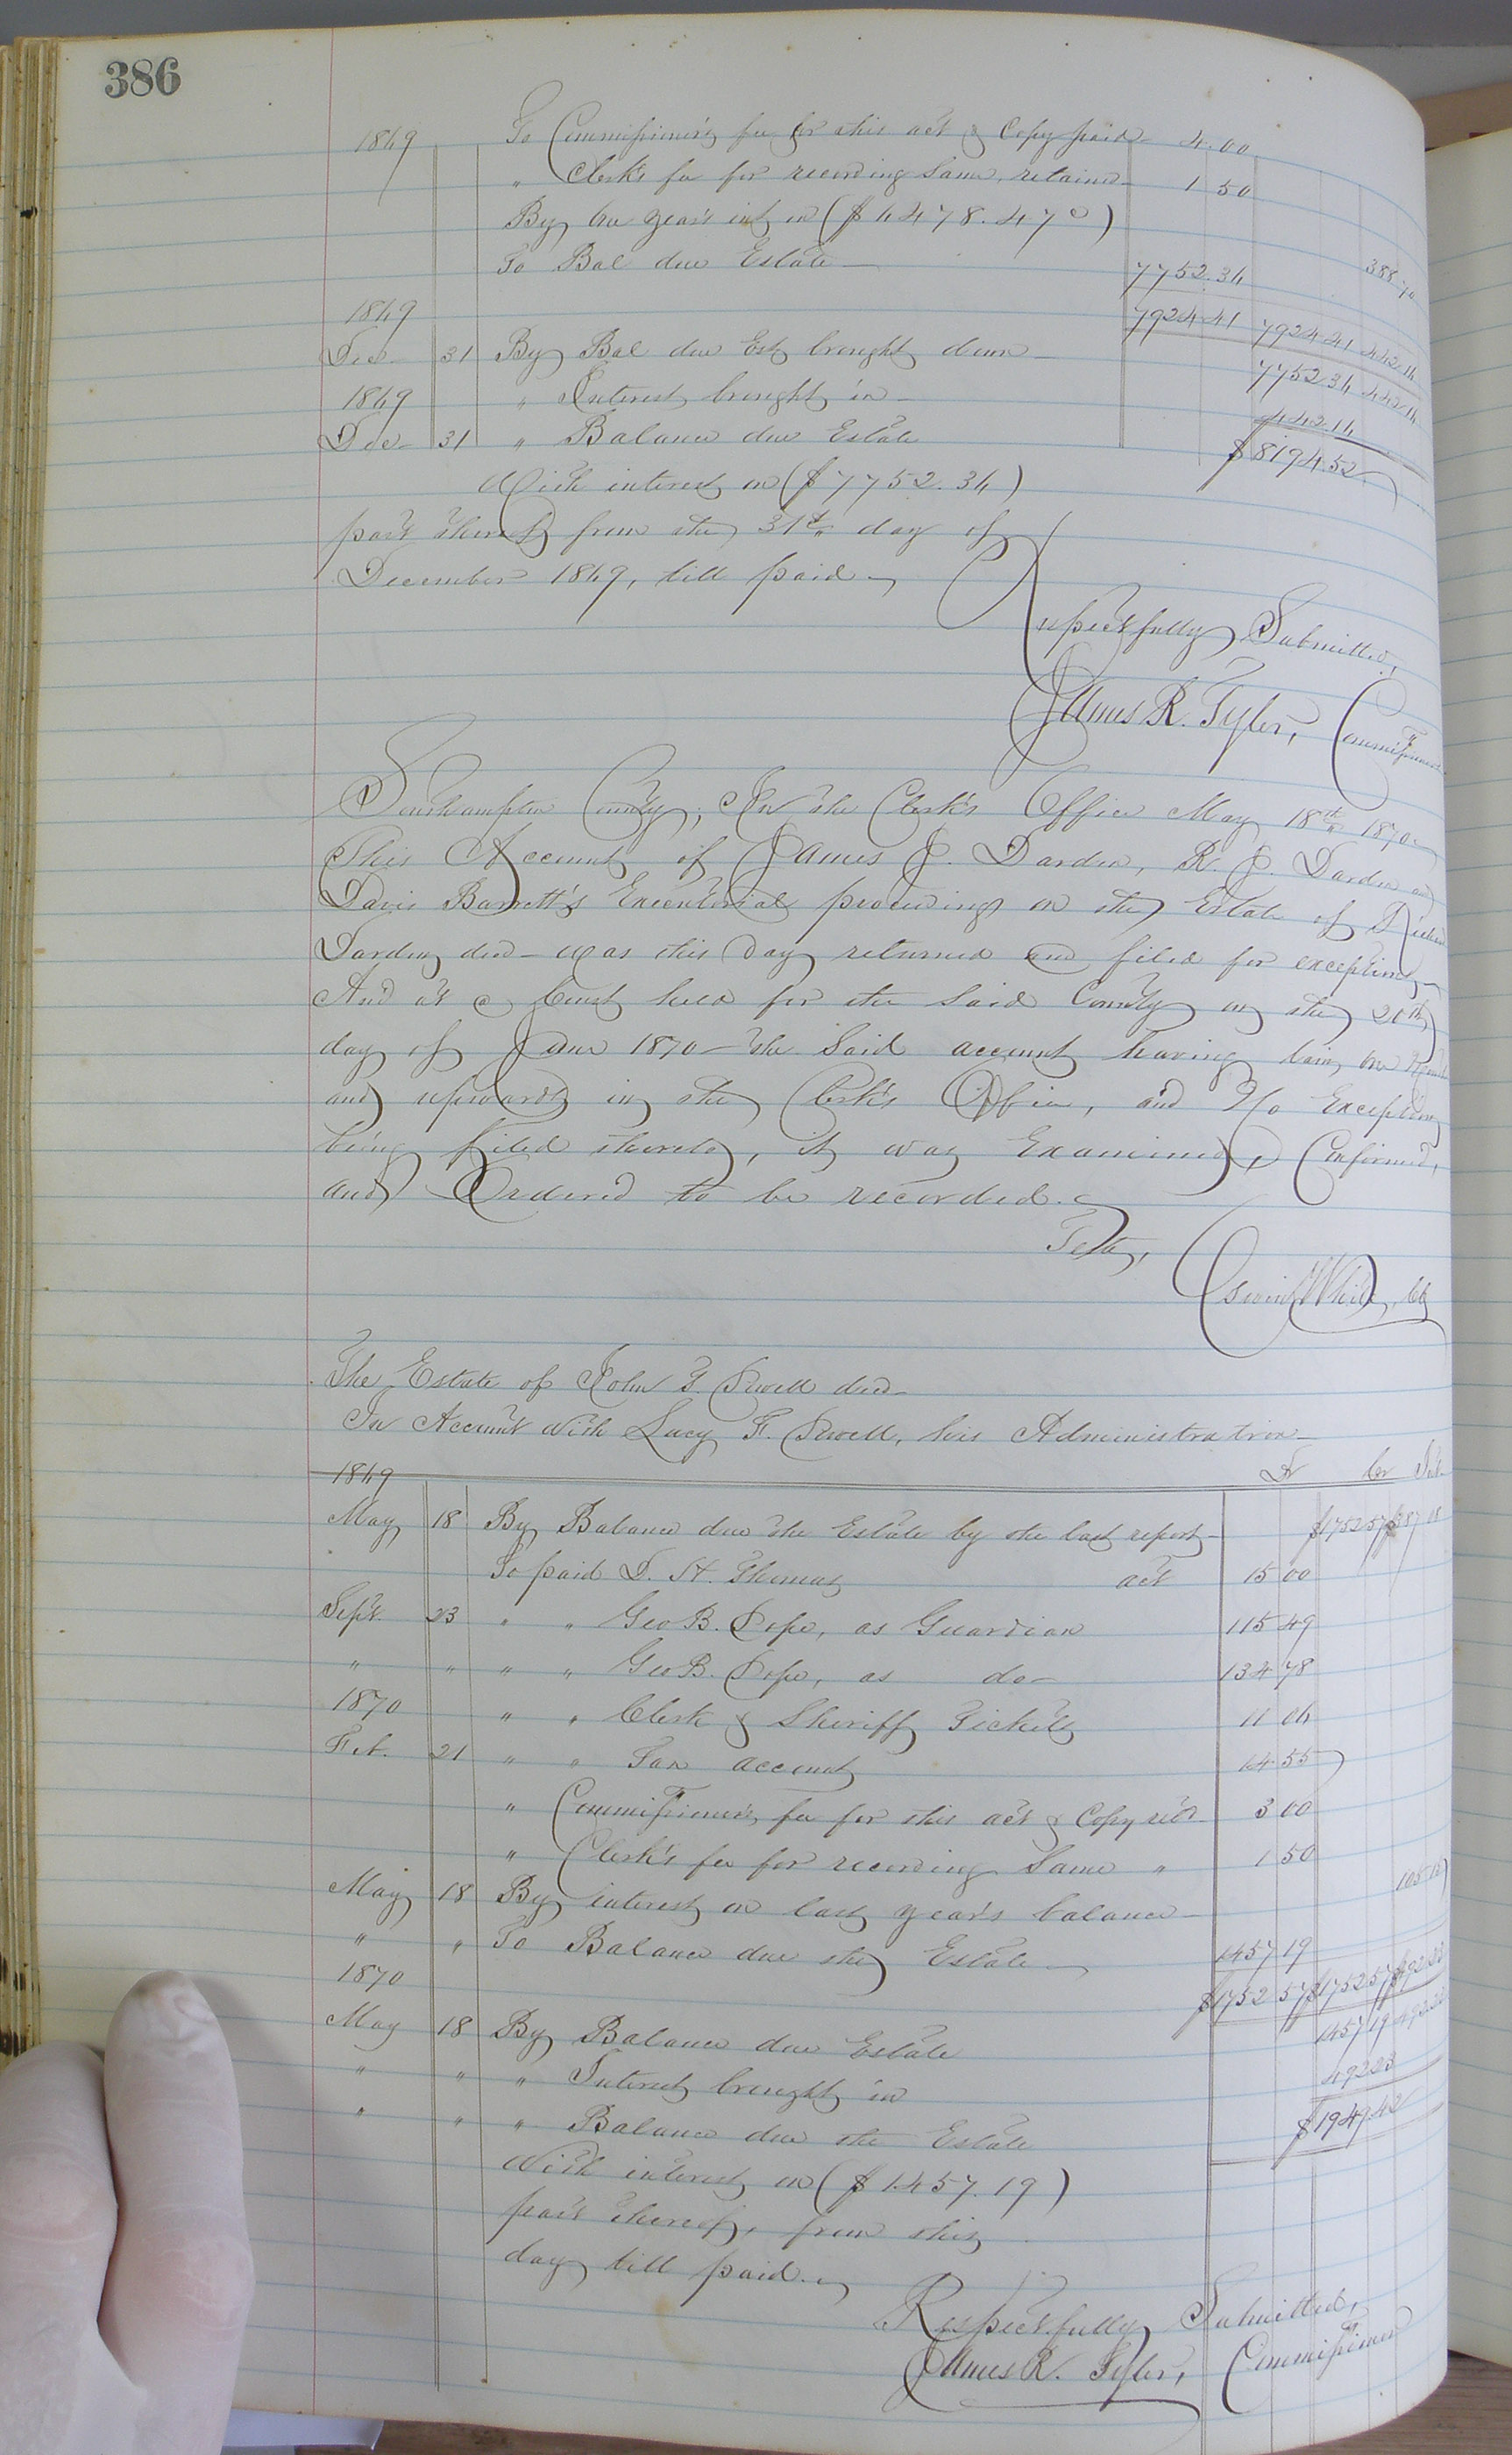 386
1869 To Commissioner's fee for this act & Copy paid 4.00
" Clerk's fee for recording Same, retained 1 50
By one year's int on ($ 6478.47c) 388.70
To Bal due Estate 7752.36
1869 7924.41 7924.41 442.16
Dec. 31 By Bal due Est brought down 7752.36 442.16
1869 " Interest brought in 442.16
Dec 31 " Balance due Estate $8194.52
With interest on ($7752.36)
part thereof from the 31st day of
December 1869, till paid
Respectfully Submitted,
James R. Tyler, Commissioner
Southampton County; In the Clerk's Office May 18th 1870
This Account of James J. Darden, R. J. Darden and
Davis Barrett's Executorial proceedings on the Estate of
Darden decd was this Day returned and filed for exceptions,
And at a Court held for the Said County on the 20th
day of June 1870 the Said account having lain one Month
and upwards in the Clerk's Office, and No Exceptions
being filed thereto, it was Examined, Confirmed,
and Ordered to be recorded.
Teste,
White, Clk
The Estate of John T. Sewell decd
In Account With Lucy F. Sewell, his Administratrix
1869 Dr Cr Int.
May 18 By Balance due the Estate by the last report $1752 57 $387 08
To paid D. H. Thomas act 15 00
Sept. 23 " " Geo B. Pope, as Guardian 115 49
" " " " Geo B. Pope, as do 134 78
1870 " " Clerk & Sheriff Tickets 11 06
Feb. 21 " " Tax account 14 55
" Commissioner's fee for this act & Copy retd 3 00
" Clerk's fee for recording Same " 1 50
May 18 By interest on last year's balance 105 15
" " To Balance due the Estate 1457 19
1870 $1752 57 $1752 57 $492 23
May 18 By Balance due Estate 1457 19 492 23
" " " Interest brought in 492 23
" " " Balance due the Estate $1949.42
With interest on ($1457.19)
part thereof, from this
day till paid.
Respectfully Submitted,
James R. Tyler, Commissioner